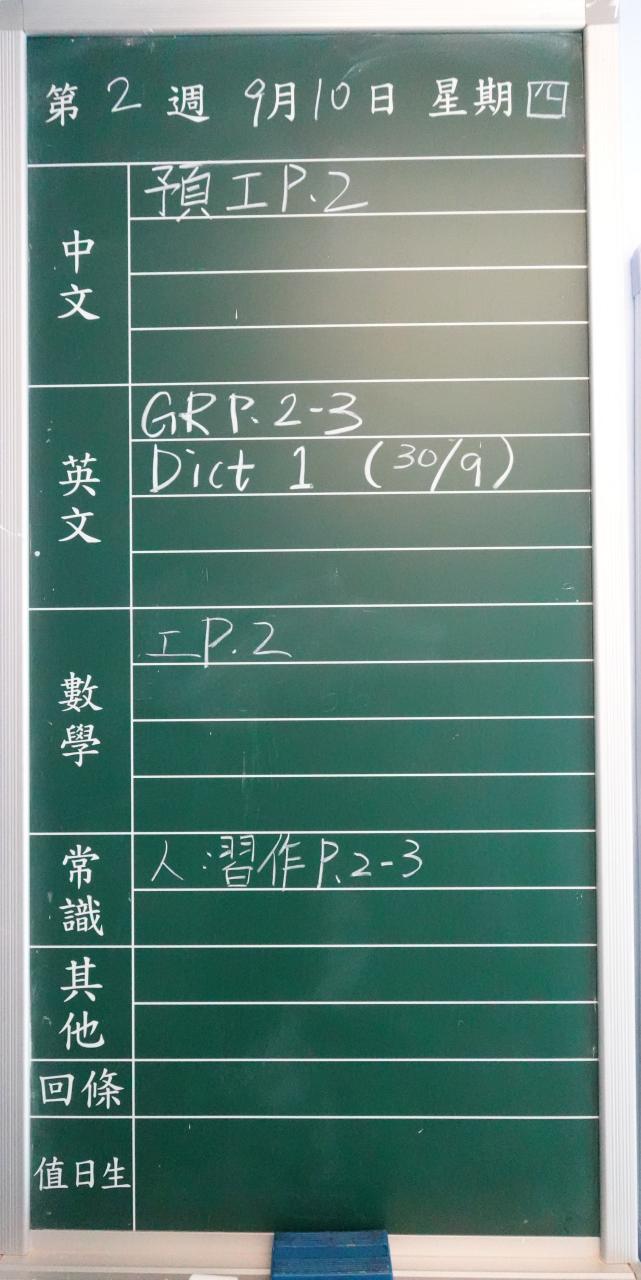 第 2 週 9月10日 星期四
中文
預工P.2
英文
GR P.2-3
Dict 1 (30/9)
數學
工P.2
常識
人:習作P.2-3
其他
回條
值日生